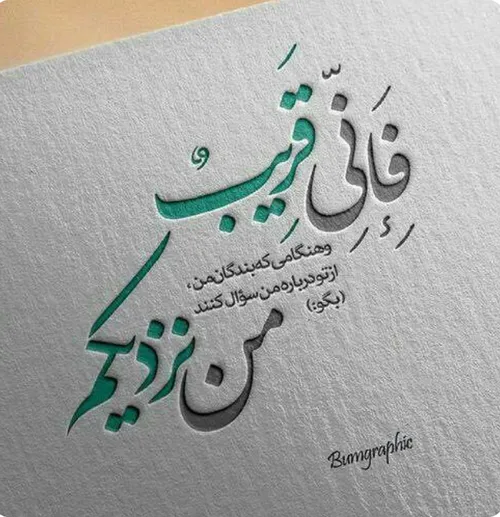 فَإِنِّی قَرِیبٌ
وهنگامی که بندگان من،
از تو درباره من سؤال کنند
(بگو:)
من نزدیکم
Bumgraphic